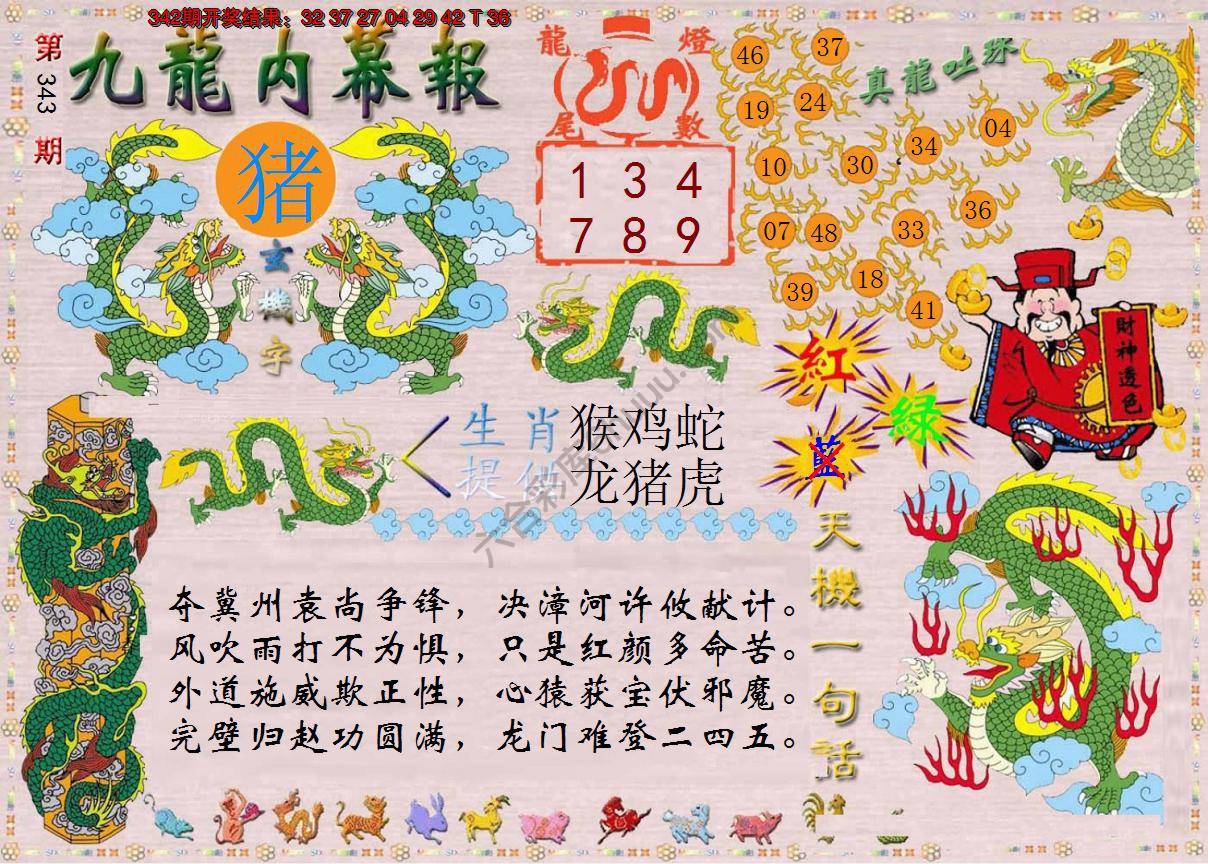 342期开奖结果：32 37 27 04 29 42 T 36
第343期
九龍内幕報
猪
玄機字
龍燈
尾數
1 3 4
7 8 9
真龍吐珠
46 37
19 24
34 04
10 30
36
07 48 33
39 18
41
財神透色
紅
綠
藍
生肖 猴鸡蛇
提供 龙猪虎
天機一句話
夺冀州袁尚争锋，决漳河许攸献计。
风吹雨打不为惧，只是红颜多命苦。
外道施威欺正性，心猿获宝伏邪魔。
完壁归赵功圆满，龙门难登二四五。